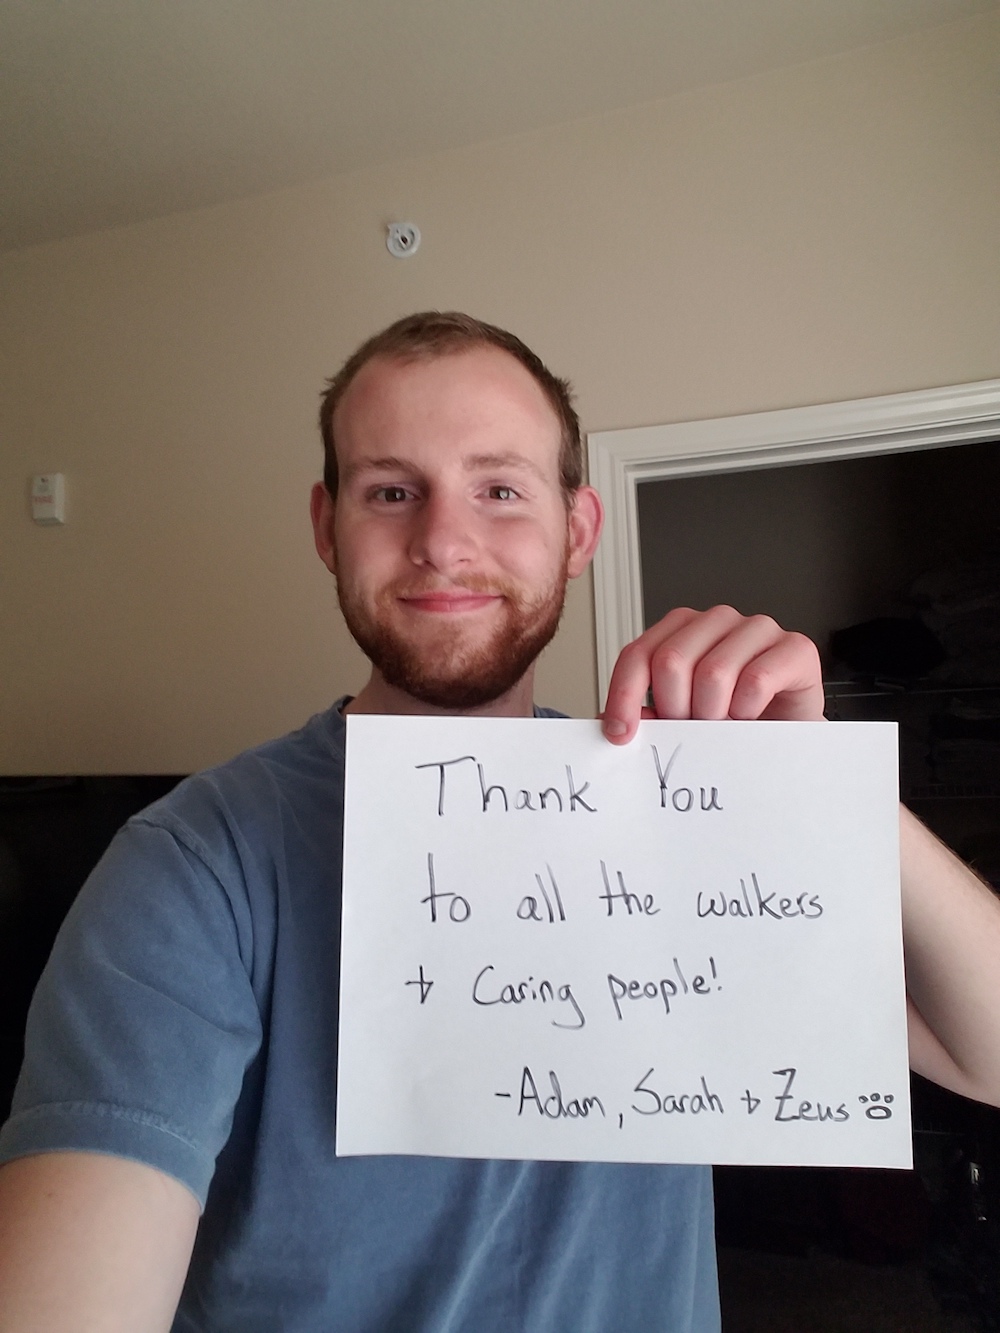 Thank You
to all the walkers
+ Caring people!
-Adam, Sarah + Zeus